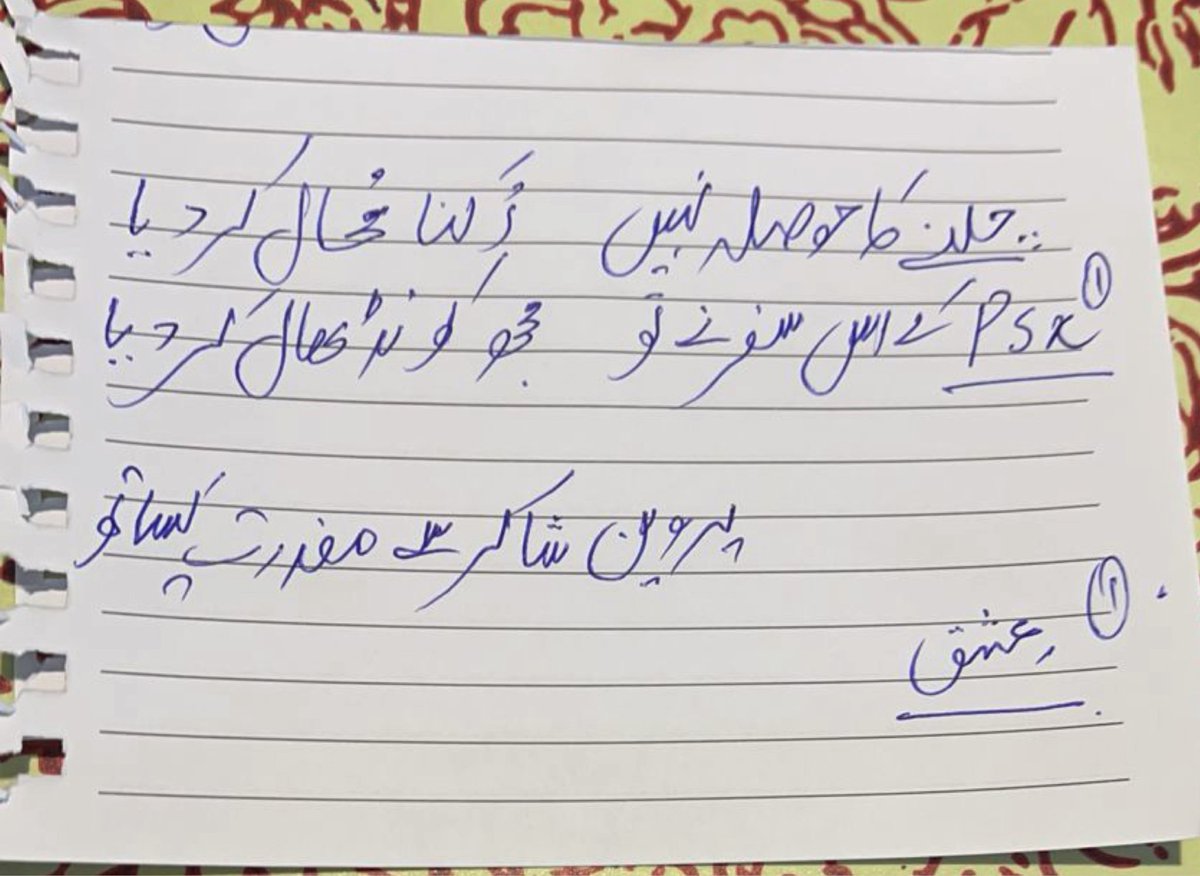 چلنے کا حوصلہ نہیں رُکنا مُحال کر دیا
PSX① کے اس سفر نے تو مجھ کو نڈھال کر دیا
پروین شاکر سے معذرت کیساتھ
① عشق